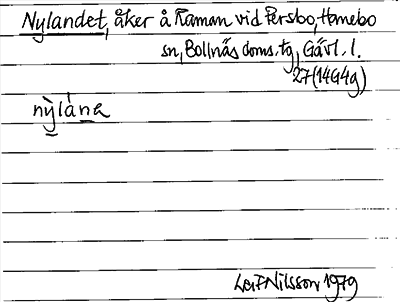 Nylandet, åker å Raman vid Persbo, Hanebo
sn, Bollnäs doms. tg, Gävl. l.
27(14G4g)
nỳlánɐ
Leif Nilsson 1979